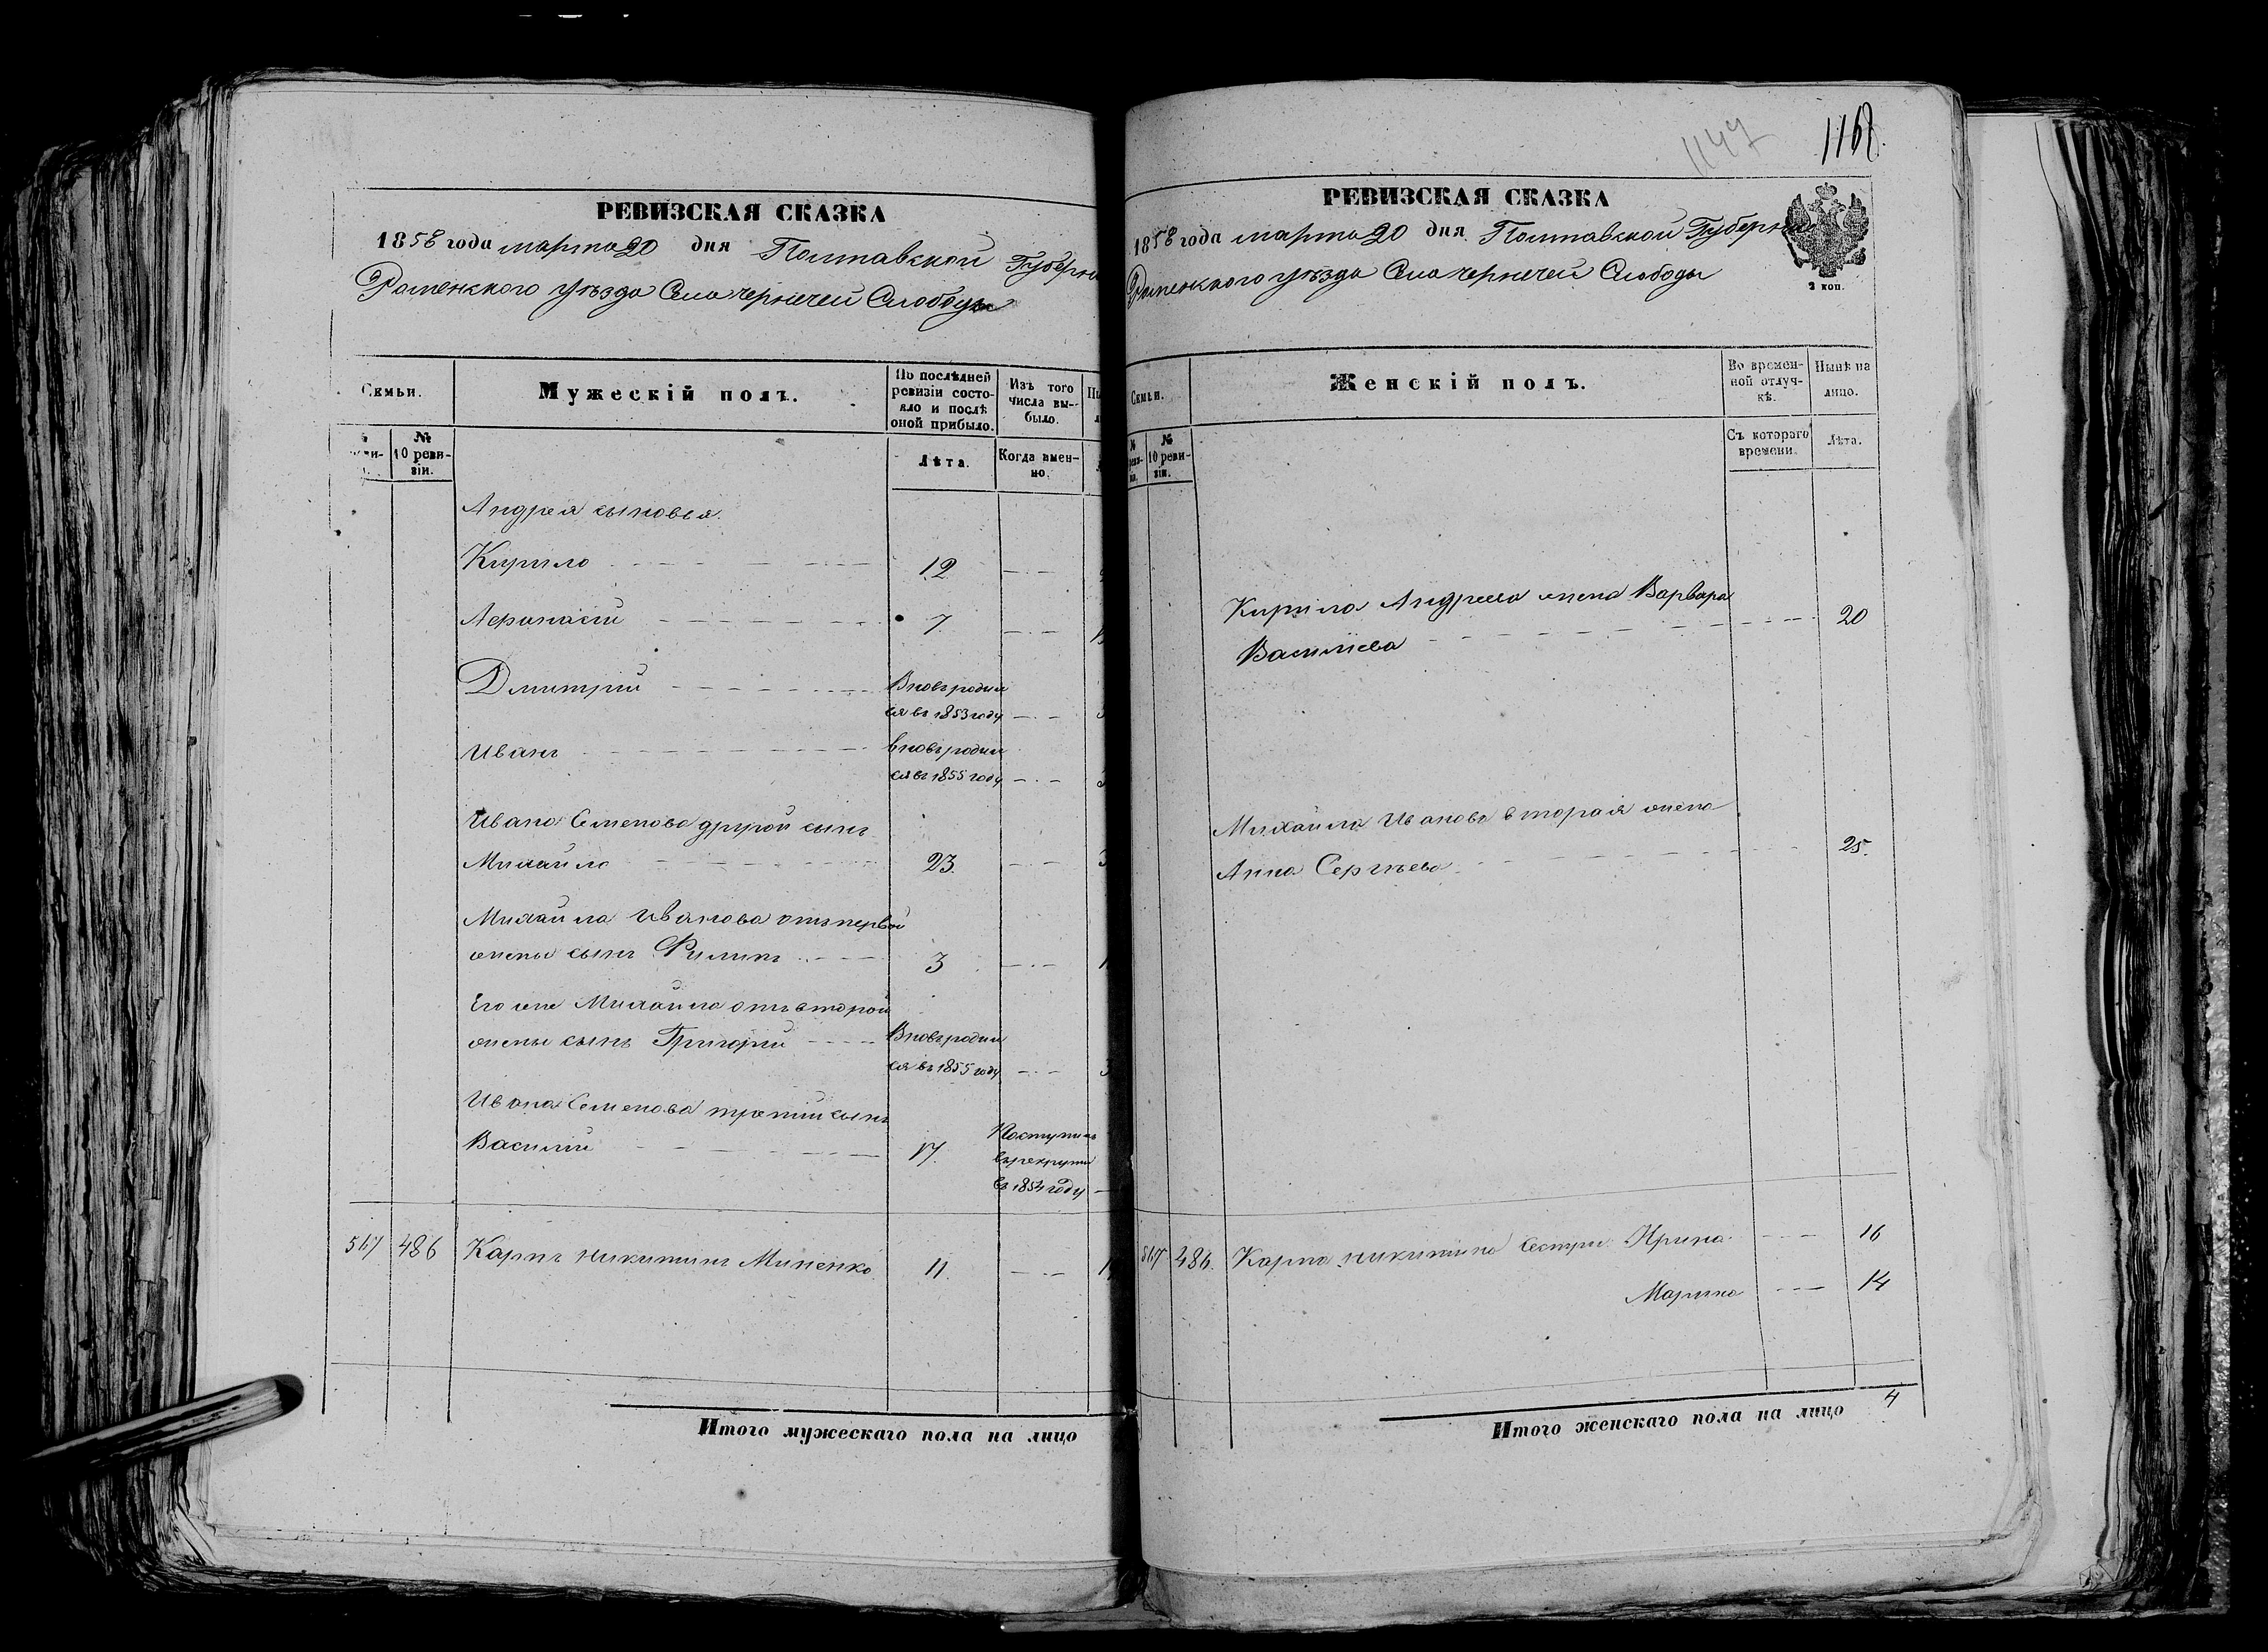 РЕВИЗСКАЯ СКАЗКА
1858 года марта 20 дня Полтавской Губерн
Роменского уѣзда Села чернечей Слободы
Семьи.
Мужескій полъ.
По послѣдней ревизіи состояло и послѣ оной прибыло.
Изъ того числа выбыло.
№ 10 ревизіи.
Лѣта.
Когда именно.
Андрея сыновья.
Кирило 12
Афанасий 7
Дмитрий Вновь родил
ся въ 1853 году
Иванъ вновь родил
ся въ 1855 году
Ивана Семенова другой сынъ
Михайло 23.
Михайла Иванова отъ первой
жены сынъ Филипъ 3
Его же Михайла отъ второй
жены сынъ Григорий Вновь родил
ся въ 1855 году
Ивана Семенова третий сынъ
Василий 17. Поступилъ
въ рекруты
въ 1854 году
567 486 Карпъ никитинъ Миненко 11.
Итого мужескаго пола на лицо
1147
1168.
РЕВИЗСКАЯ СКАЗКА
1858 года марта 20 дня Полтавской Губернии
Роменского уѣзда Села чернечей Слободы
2 коп.
Семьи.
Женскій полъ.
Во временной отлучкѣ.
Нынѣ на лицо.
№ 10 ревизіи.
Съ котораго времени.
Лѣта.
Кирила Андреева жена Варвара
Василиева 20
Михайла Иванова вторая жена
Анна Сергѣева 25.
567 486. Карпа никитина сестры Ирина 16
Марина 14
4
Итого женскаго пола на лицо